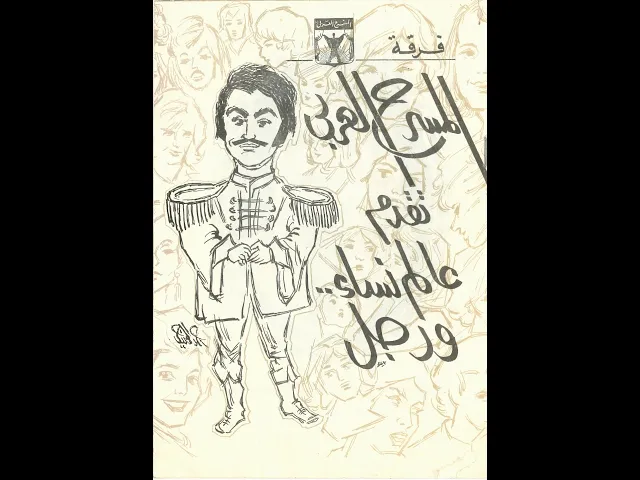 المسرح العربي
فرقة
المسرح العربي
تقدم
عالم نساء..
ورجل